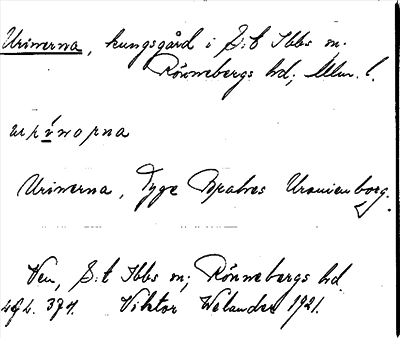 Urinerna, kungsgård i S:t Ibbs sn.
Rönnebergs hd, Mlm. l.
Urinerna, Tyge Brahes Uranienborg.
Ven, S:t Ibbs sn; Rönnebergs hd
Viktor Welander 1921.